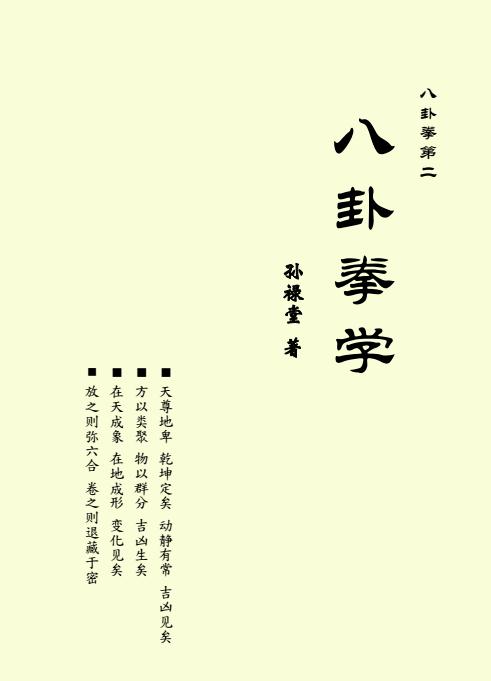 八卦拳第二
八卦拳学
孙禄堂 著
■ 天尊地卑 乾坤定矣 动静有常 吉凶见矣
■ 方以类聚 物以群分 吉凶生矣
■ 在天成象 在地成形 变化见矣
■ 放之则弥六合 卷之则退藏于密